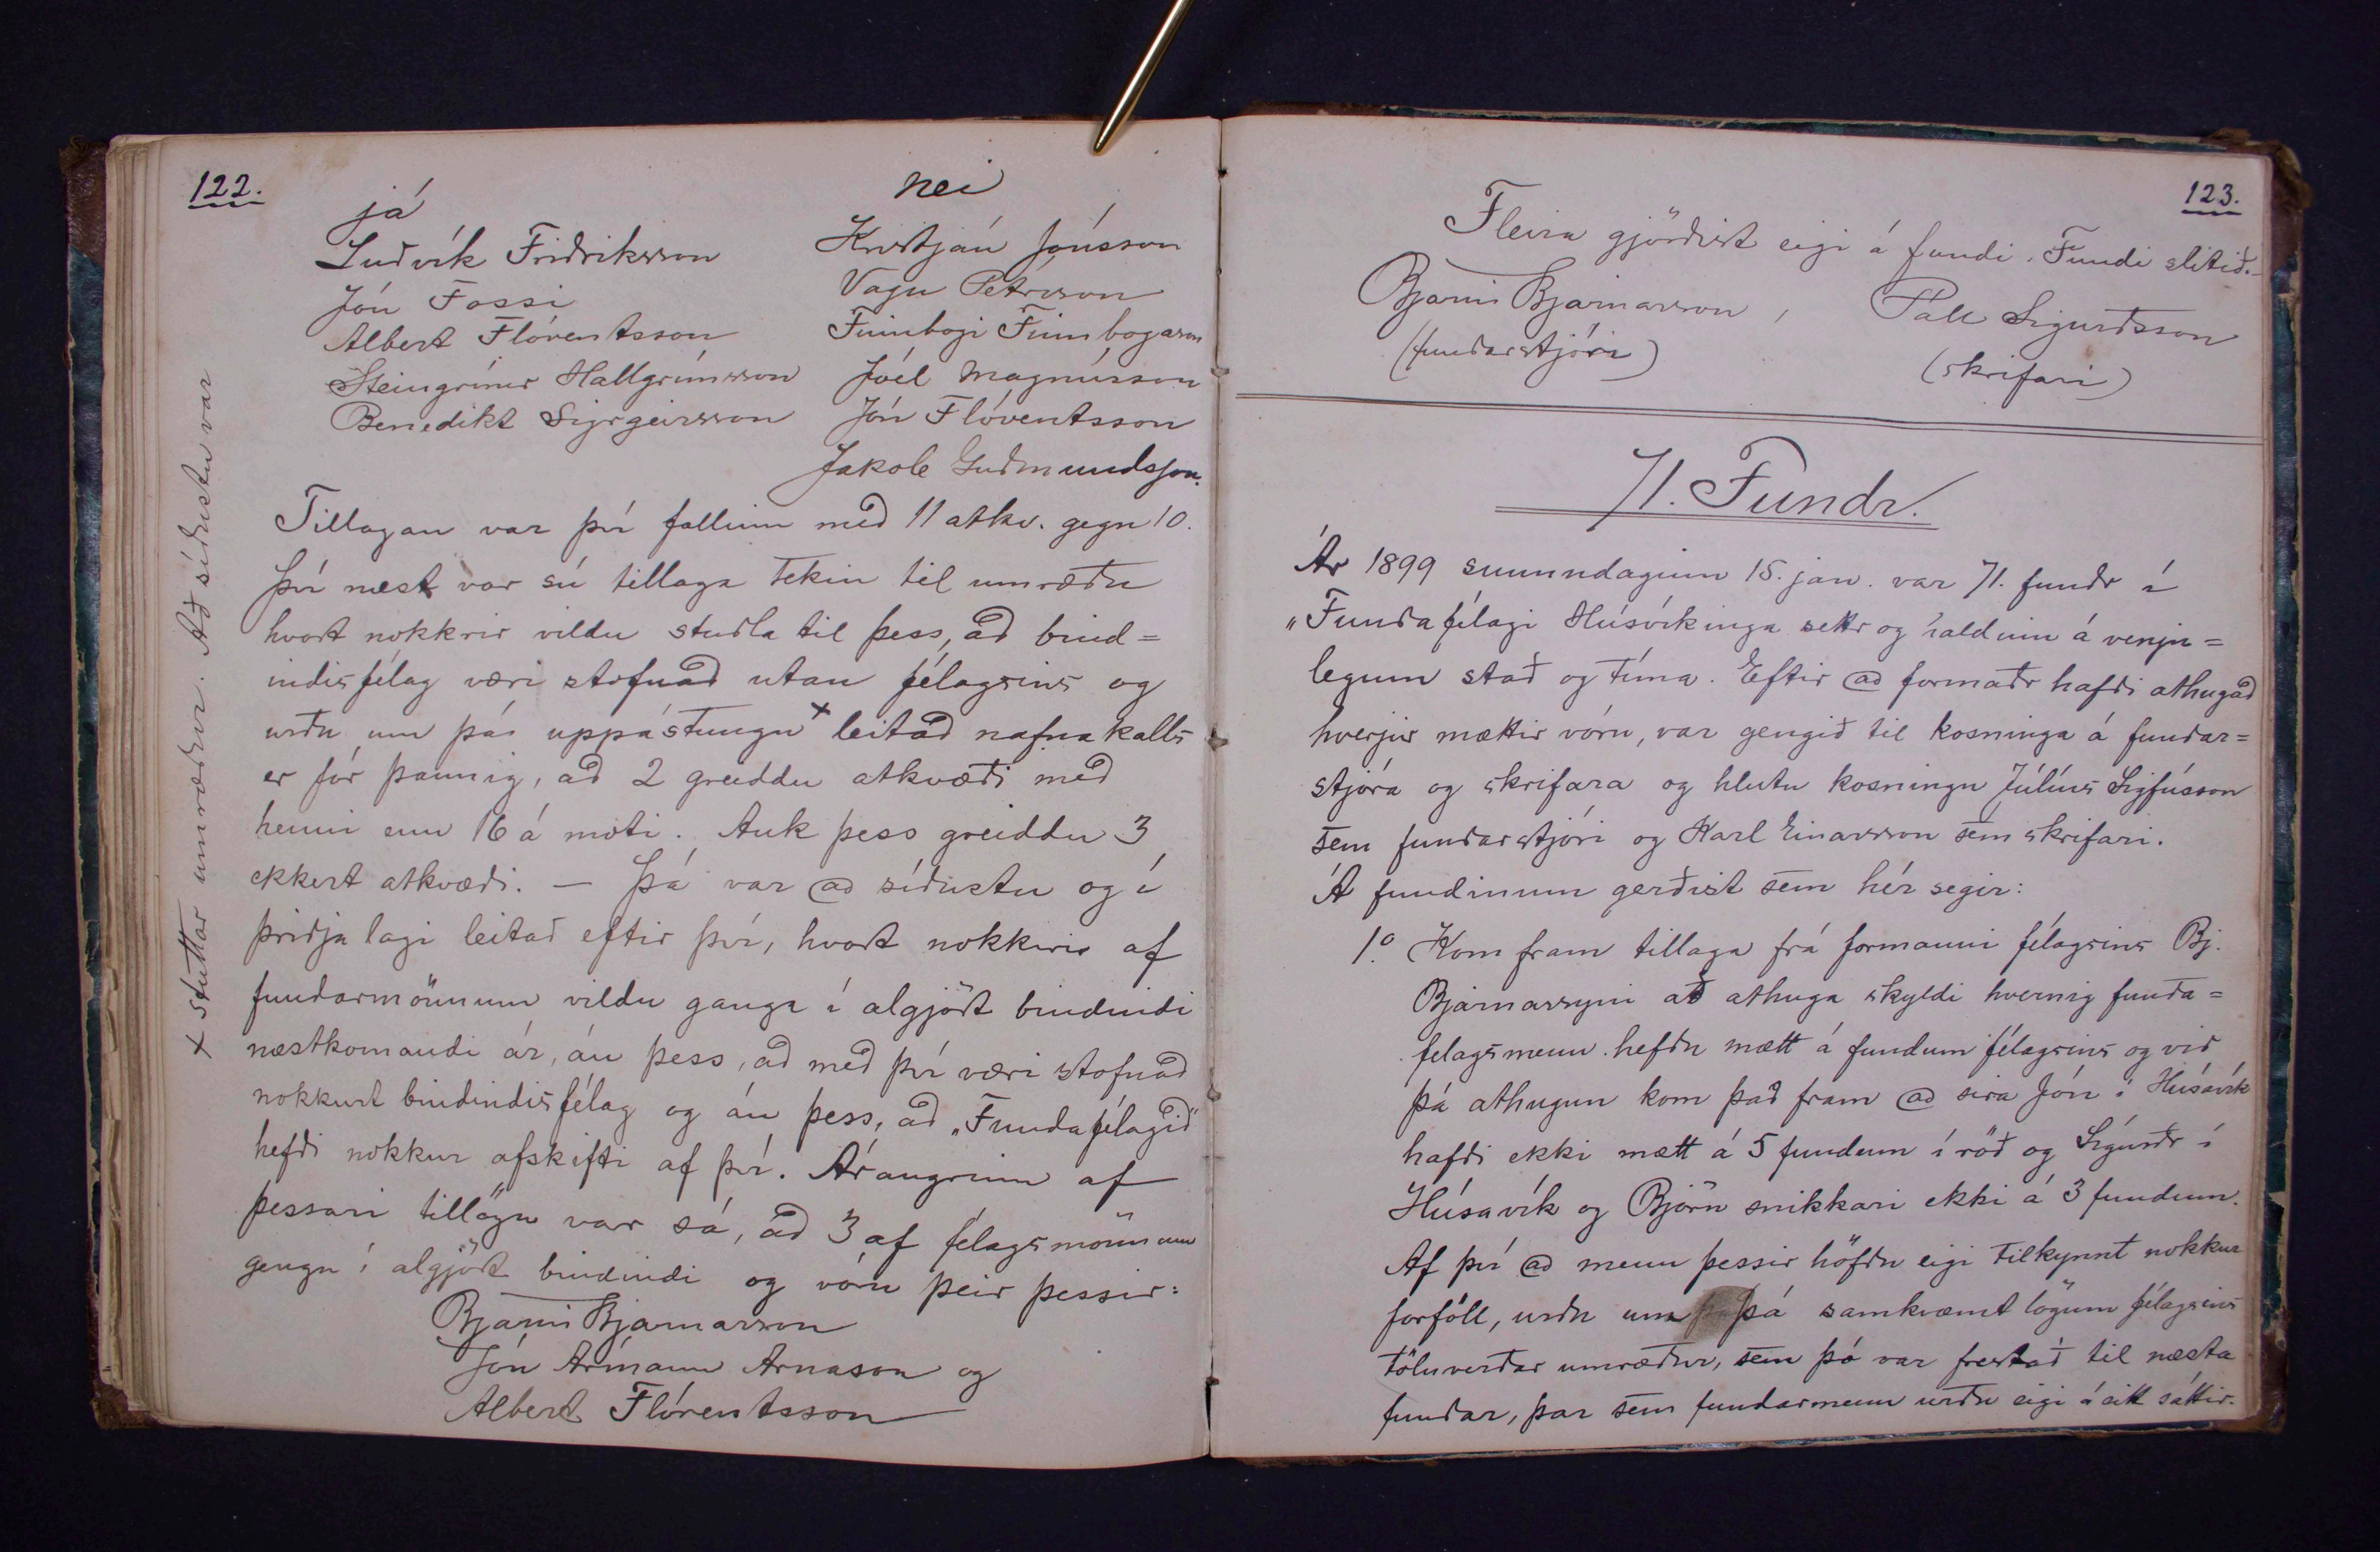 122.
já
Luðvík Friðriksson
Jón Fossi
Albert Flóventsson
Steingrímur Hallgrímsson
Benedikt Sigrgeirsson
nei
Kristján Jónsson
Vagn Pétrsson
Finnbogi Finnbogason
Jóel Magnússon
Jón Flóventsson
Jakob Guðmundsson.
Tillagan var því fallinn með 11 atkv. gegn 10.
Því næst var sú tillaga tekin til umræðu
hvort nokkrir vildu stuðla til þess, að bind=
indisfélag væri stofnað utan félagsins og
urðu um þá uppástungu x leitað nafnakalls
er fór þannig, að 2 greiddu atkvæði með
henni enn 16 á móti. Auk þess greiddu 3
ekkert atkvæði. — Þá var að síðustu og í
þriðja lagi leitað eftir því, hvort nokkurir af
fundarmönnum vildu ganga í algjört bindindi
næstkomandi ár, án þess, að með því væri stofnað
nokkurt bindindisfélag og án þess, að „Fundafélagið"
hefði nokkur afskifti af því. Árangrinn af
þessari tillögu var sá, að 3 af félagsmönnum
gengu í algjört bindindi og vóru þeir þessir:
Bjarni Bjarnarson
Jón Ármann Árnason og
Albert Flóventsson
x stuttar umræður. Að síðustu var
123.
Fleira gjörðist eigi á fundi. Fundi slitið.–
Bjarni Bjarnarson, Páll Sigurðsson
(fundarstjóri) (skrifari)
71. Fundr.
Ár 1899 sunnudaginn 15. jan. var 71. fundr í
„Fundafélagi Húsvíkinga settr og haldinn á venju=
legum stað og tíma. Eftir að formaðr hafði athugað
hverjir mættir vóru, var gengið til kosninga á fundar=
stjóra og skrifara og hlutu kosningu Júlíus Sigfússon
sem fundarstjóri og Karl Einarsson sem skrifari.
Á fundinum gerðist sem hér segir:
1.o Kom fram tillaga frá formanni félagsins Bj.
Bjarnarsyni að athuga skyldi hvernig funda=
felagsmenn hefðu mætt á fundum félagsins og við
þá athugun kom það fram að sira Jón í Húsavík
hafði ekki mætt á 5 fundum í röð og Sigurðr í
Húsavík og Björn snikkari ekki á 3 fundum.
Af því að menn þessir höfðu eigi tilkynnt nokkur
forföll, urðu um þá samkvæmt lögum félagsins
töluverðar umræður, sem þó var frestað til næsta
fundar, þar sem fundarmenn urðu eigi á eitt sáttir.